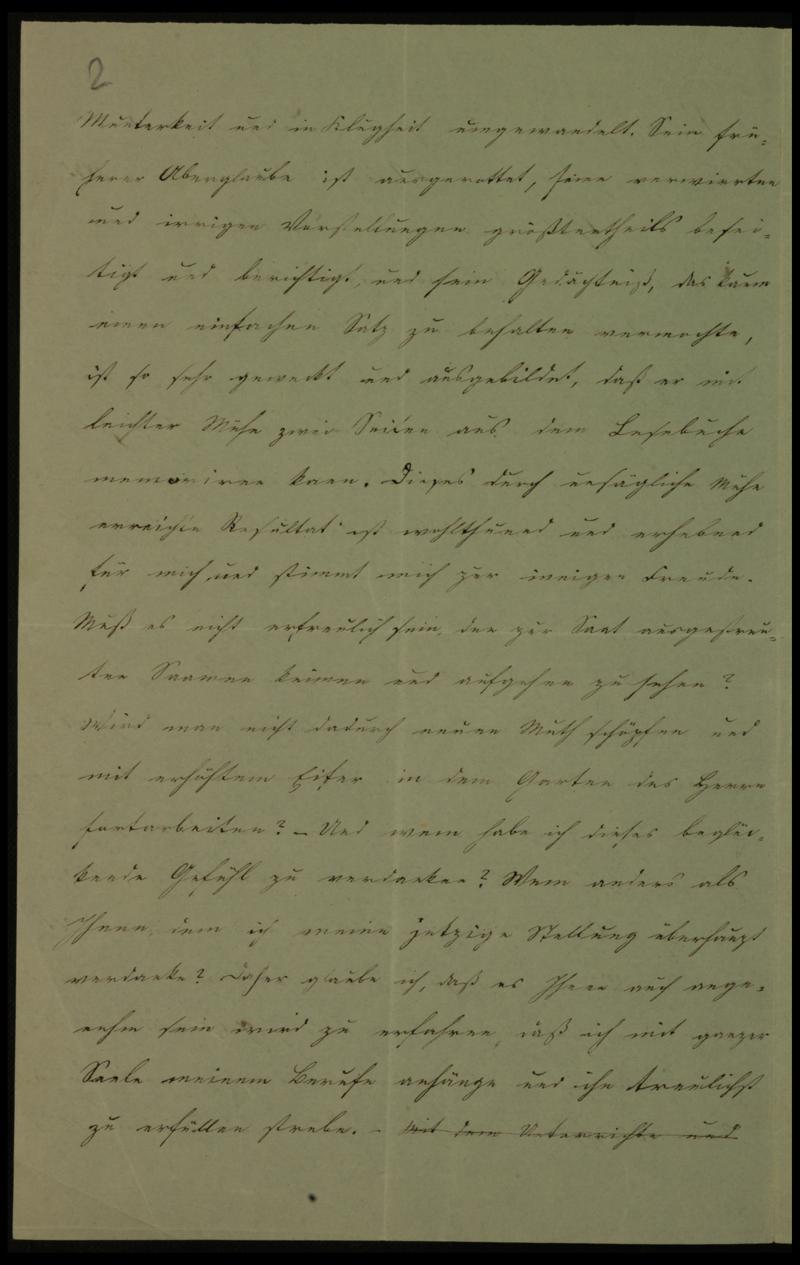 2
Munterkeit und in Klugheit umgewandelt. Sein frü-
herer Aberglaube ist ausgerottet, seine verwirrten
und irrigen Vorstellungen größtentheils besei-
tigt und berichtigt, und sein Gedächtniß, das kaum
einen einfachen Satz zu behalten vermochte,
ist so sehr geweckt und ausgebildet, daß er mit
leichter Mühe zwei Seiten aus dem Lesebuche
memoriren kann. Dieses durch unsägliche Mühe
erreichte Resultat ist wohlthuend und erhebend
für mich, und stimmt mich zur innigen Freude.
Muß es nicht erfreulich sein, den zur Saat ausgestreu-
ten Saamen keimen und aufgehen zu sehen?
Wird man nicht dadurch neuen Muth schöpfen und
mit erhöhtem Eifer in dem Garten des Herrn
fortarbeiten? – Und wem habe ich dieses beglü-
kende Gefühl zu verdanken? Wem anders als
Ihnen, dem ich meine jetzige Stellung überhaupt
verdanke? Daher glaube ich, daß es Ihnen auch ange-
nehm sein wird zu erfahren, daß ich mit ganzer
Seele meinem Berufe anhänge und ihn treulichst
zu erfüllen strebe. – Mit dem Unterrichte und